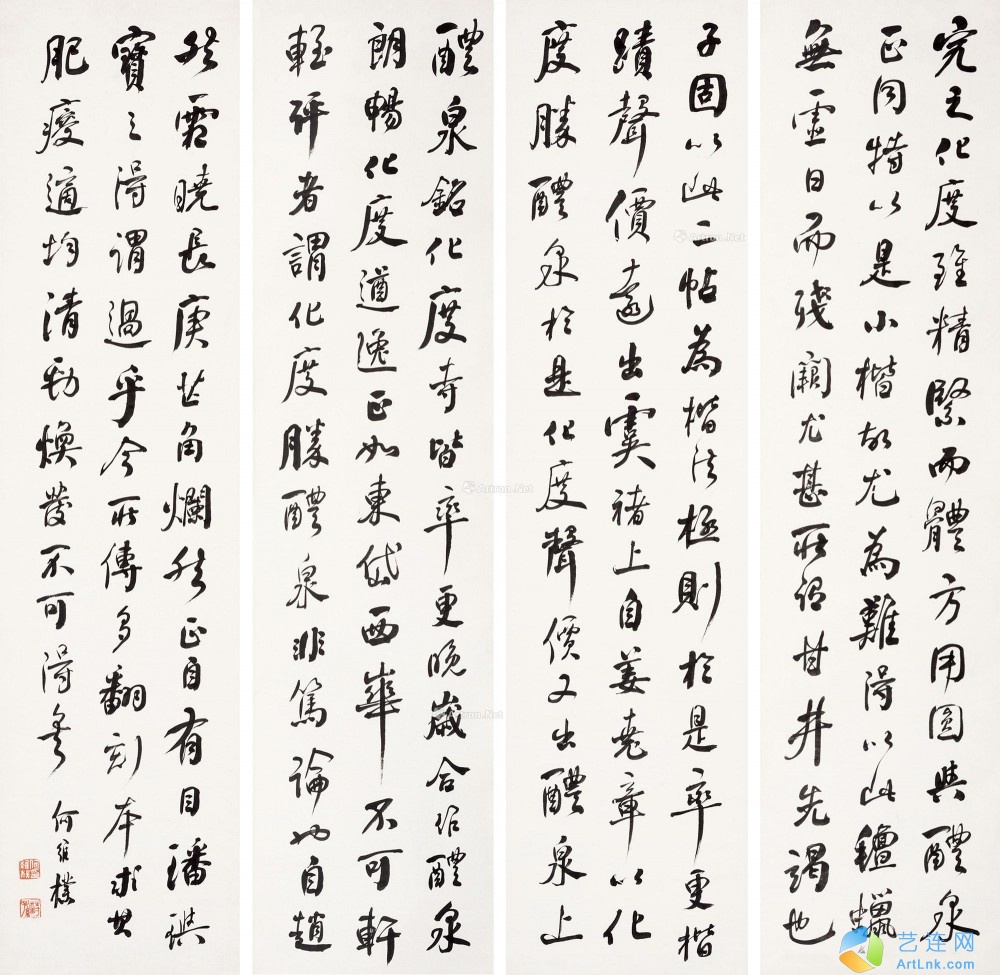 究之化度雖精緊而體方用圓與醴泉
正同特以是小楷故尤為難得以此氈蠟
無虛日而殘闕尤甚所謂甘井先竭也
子固以此二帖為楷法極則於是率更楷
蹟聲價遠出虞褚上自姜堯章以化
度勝醴泉於是化度聲價又出醴泉上
醴泉銘化度寺皆率更晚歲合作醴泉
朗暢化度遒逸正如東岱西華不可軒
輊評者謂化度勝醴泉非篤論也自趙
然霜曉長庚芒角爛然正自有目璠璵
寶之得謂過乎今所傳多翻刻本求其
肥瘦適均清勁煥發不可得矣
何維樸
Artron.Net
Artron.Net
Artron.Net
艺连网
ArtLnk.com